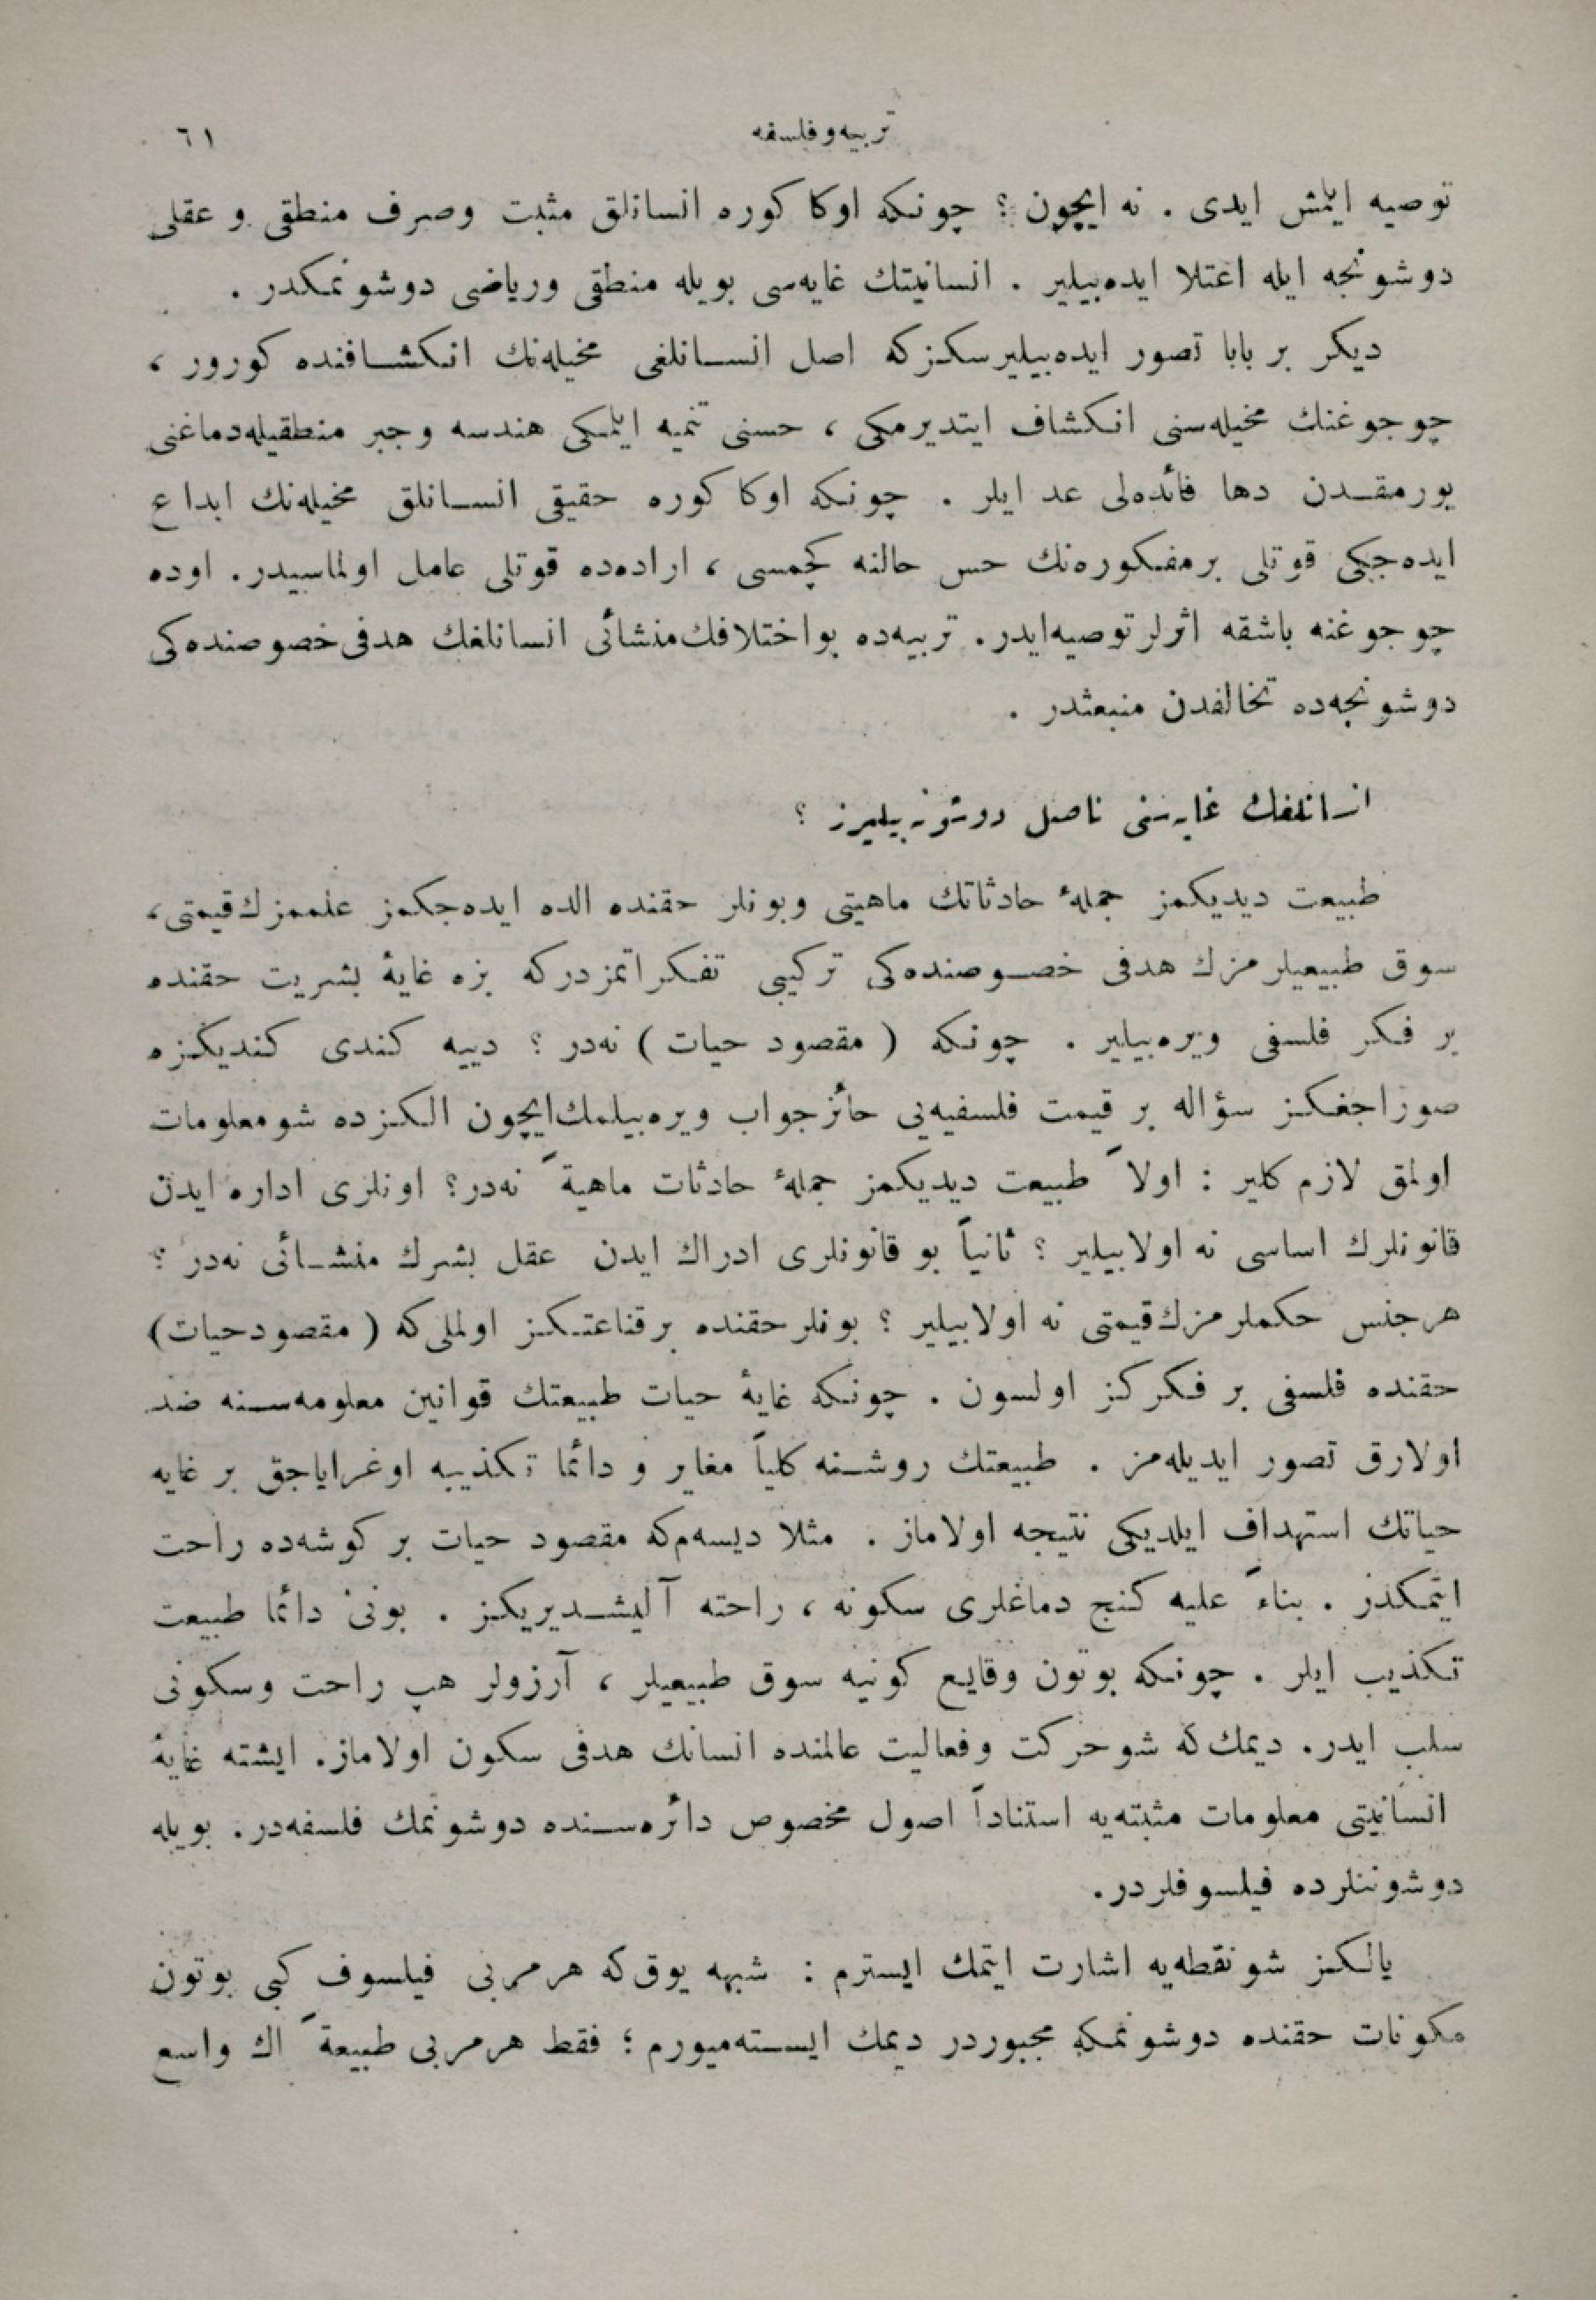 تربیه و فلسفه
٦١
توصیه ایلمش ایدی . نه ایچون ؟ چونکه اوکا کوره انسانلق مثبت وصرف منطقی و عقلی
دوشونجه ایله اعتلا ایده‌بیلیر . انسانیتك غایه‌سی بویله منطقی وریاضی دوشونمکدر .
دیکر بر بابا تصور ایده‌بیلیرسکزکه اصل انسانلغی مخیله‌نك انکشافنده کورور ،
چوجوغنك مخیله‌سنی انکشاف ایتدیرمکی ، حسنی تنمیه ایلمکی هندسه وجبر منطقیله‌دماغنی
یورمقدن دها فائده‌لی عد ایلر . چونکه اوکا کوره حقیقی انسانلق مخیله‌نك ابداع
ایده‌جکی قوتلی برمفکوره‌نك حس حالنه کچمسی ، اراده‌ده قوتلی عامل اولماسیدر . اوده
چوجوغنه باشقه اثرلر توصیه‌ایدر . تربیه‌ده بواختلافك‌منشائی انسانلغك هدفی خصوصنده‌کی
دوشونجه‌ده تخالفدن منبعثدر .
انسانلغك غایه‌سنی ناصل دوشونه‌بیلیرز ؟
طبیعت دیدیکمز جملهٔ حادثاتك ماهیتی وبونلر حقنده الده ایده‌جکمز علممزك‌قیمتی ،
سوق طبیعیلرمزك هدفی خصوصنده‌کی ترکیبی تفکراتمزدرکه بزه غایهٔ بشریت حقنده
بر فکر فلسفی ویره‌بیلیر . چونکه ( مقصود حیات ) نه‌در ؟ دییه کندی کندیکزه
صوراجغکز سؤاله بر قیمت فلسفیه‌یی حائز جواب ویره‌بیلمك‌ایچون الکزده شومعلومات
اولمق لازم کلیر : اولاً طبیعت دیدیکمز جملهٔ حادثات ماهیةً نه‌در؟ اونلری اداره ایدن
قانونلرك اساسی نه اولابیلیر ؟ ثانیاً بو قانونلری ادراك ایدن عقل بشرك منشائی نه‌در ؟
هرجنس حکملرمزك‌قیمتی نه اولابیلیر ؟ بونلر حقنده برقناعتکز اولملی‌که ( مقصودحیات )
حقنده فلسفی بر فکرکز اولسون . چونکه غایهٔ حیات طبیعتك قوانین معلومه‌سنه ضد
اولارق تصور ایدیله‌مز . طبیعتك روشنه کلیاً مغایر و دائما تکذیبه اوغرایاجق بر غایه
حیاتك استهداف ایلدیکی نتیجه اولاماز . مثلا دیسه‌م‌که مقصود حیات بر کوشه‌ده راحت
ایتمکدر . بناءً علیه کنج دماغلری سکونه ، راحته آلیشدیریکز . بونی دائما طبیعت
تکذیب ایلر . چونکه بوتون وقایع کونیه سوق طبیعیلر ، آرزولر هپ راحت وسکونی
سلب ایدر . دیمك‌که شو حرکت وفعالیت عالمنده انسانك هدفی سکون اولاماز . ایشته غایهٔ
انسانیتی معلومات مثبته‌یه استناداً اصول مخصوص دائره‌سنده دوشونمك فلسفه‌در . بویله
دوشوننلرده فیلسوفلردر .
یالکز شو نقطه‌یه اشارت ایتمك ایسترم : شبهه یوق‌که هرمربی فیلسوف کبی بوتون
مکونات حقنده دوشونمکه مجبوردر دیمك ایسته‌میورم ؛ فقط هرمربی طبیعةً اك واسع